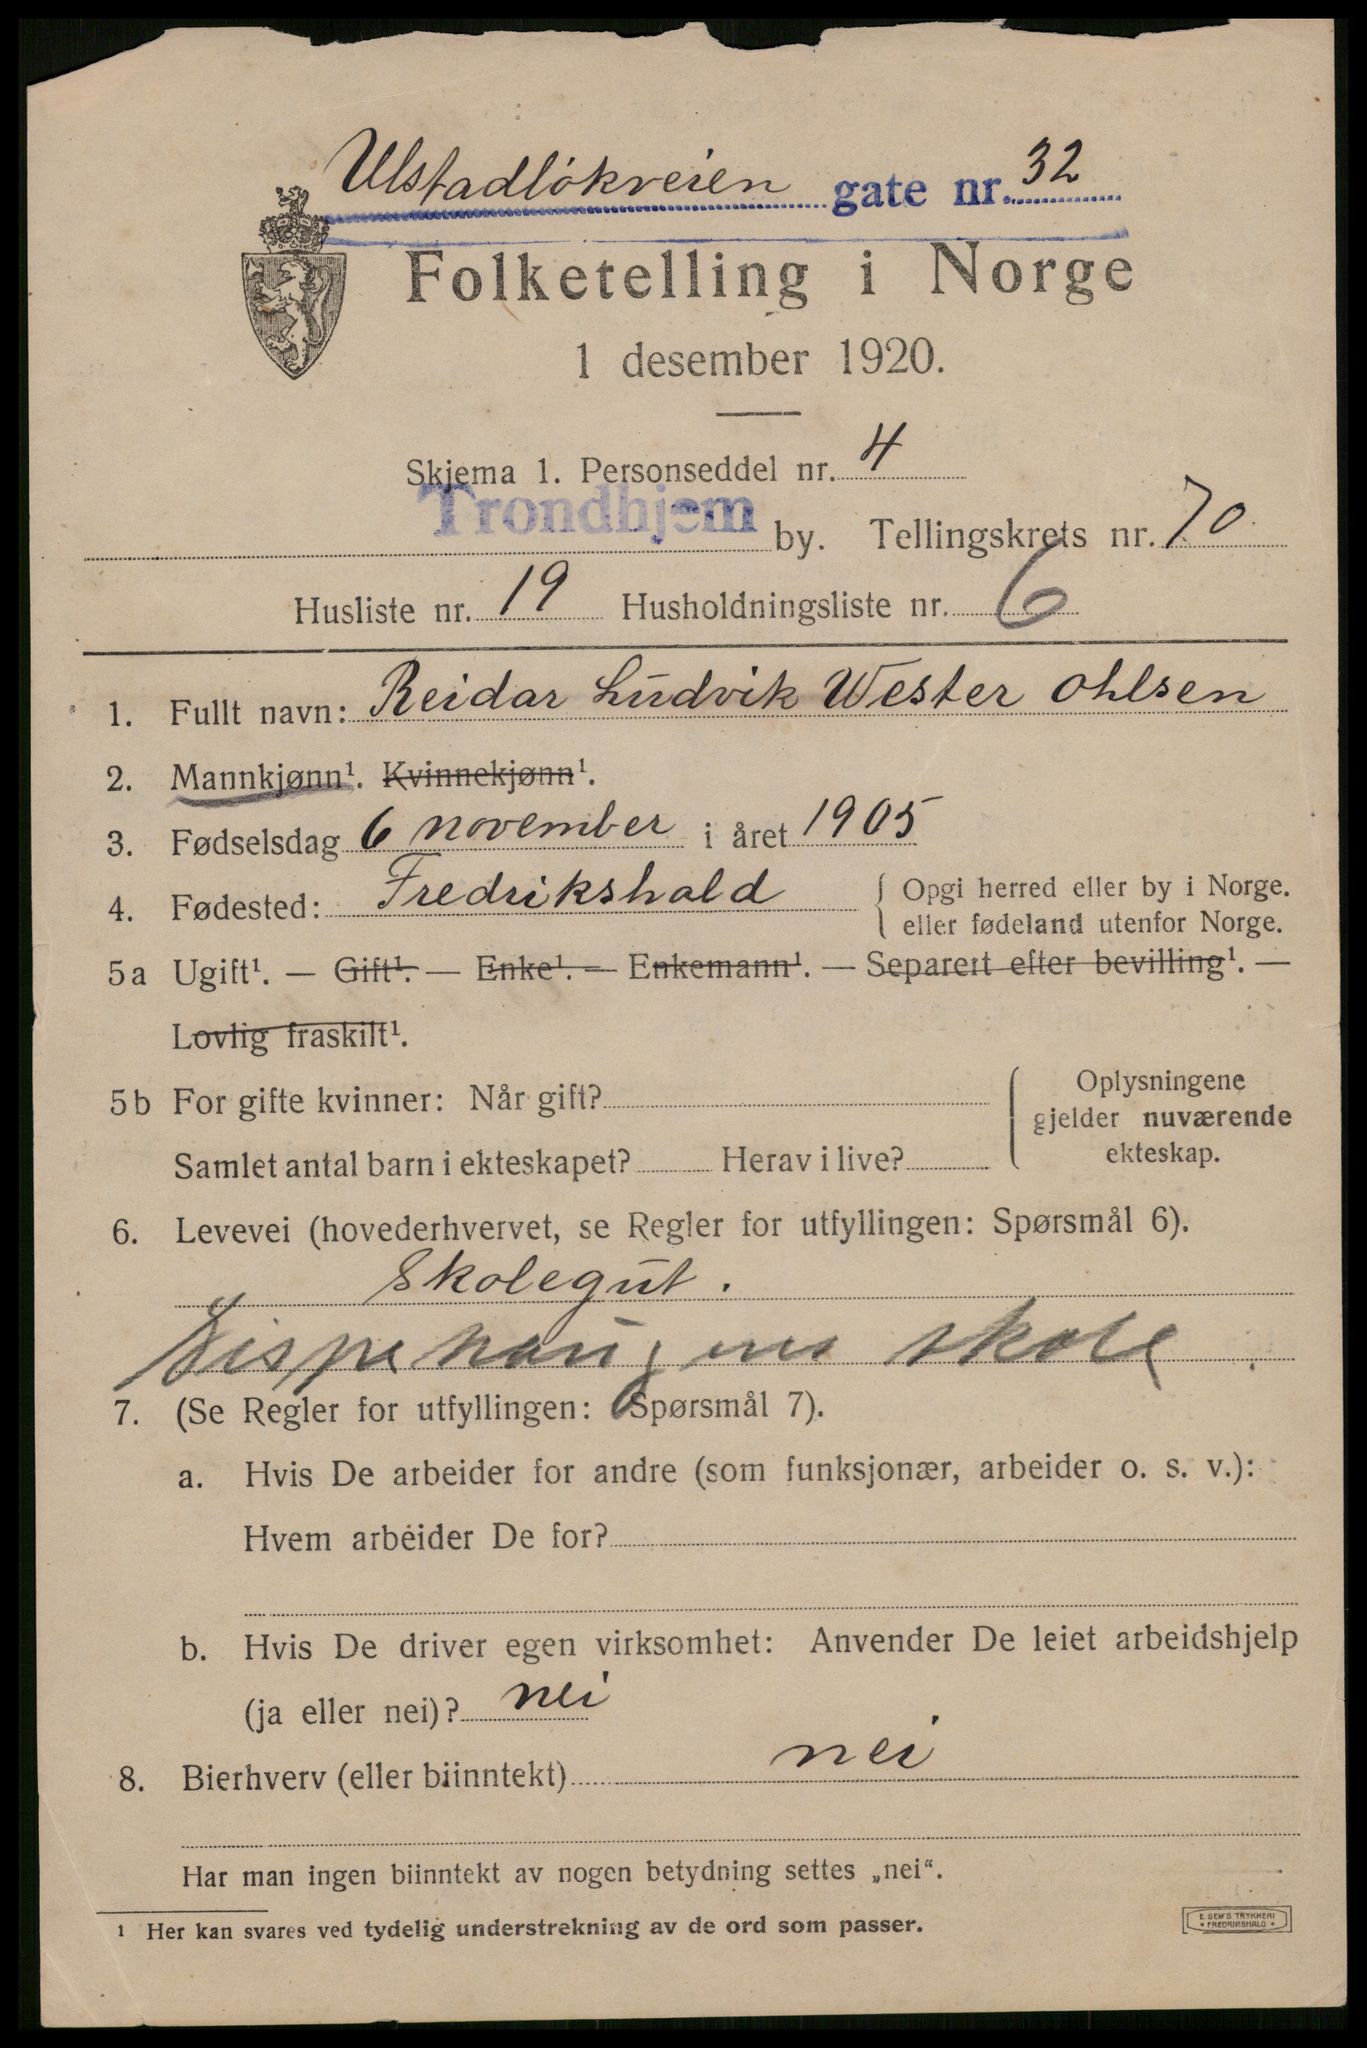 Ulstadløkveien gate nr. 32
Folketelling i Norge
1 desember 1920.
Skjema 1. Personseddel nr. 4
Trondhjem by. Tellingskrets nr. 70
Husliste nr. 19 Husholdningsliste nr. 6
1. Fullt navn: Reidar Ludvik Wester Ohlsen
2. Mannkjønn¹. Kvinnekjønn¹.
3. Fødselsdag 6 november i året 1905
4. Fødested: Fredrikshald { Opgi herred eller by i Norge.
eller fødeland utenfor Norge.
5a Ugift¹. — Gift¹. — Enke¹. — Enkemann¹. — Separert efter bevilling¹. —
Lovlig fraskilt¹.
5b For gifte kvinner: Når gift?
Samlet antal barn i ekteskapet? Herav i live?
Oplysningene
gjelder nuværende
ekteskap.
6. Levevei (hovederhvervet, se Regler for utfyllingen: Spørsmål 6).
Skolegut.
skole
7. (Se Regler for utfyllingen: Spørsmål 7).
a. Hvis De arbeider for andre (som funksjonær, arbeider o. s. v.):
Hvem arbeider De for?
b. Hvis De driver egen virksomhet: Anvender De leiet arbeidshjelp
(ja eller nei)? nei
8. Bierhverv (eller biinntekt) nei
Har man ingen biinntekt av nogen betydning settes „nei“.
¹ Her kan svares ved tydelig understrekning av de ord som passer.
E. SEM'S TRYKKERI
FREDRIKSHALD